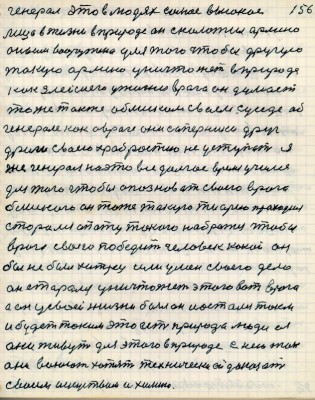 генерал это в людях самое высокое 156
лицо в жизни в природе он сколотил армию
он был вооружено для того чтобы другую
такую армию уничтожет в природе
как злейшего у жизни врага он думает
тоже также о близким своем соседе об
генерале как о враге они соперники друг
другу своею храбростью не уступят я
же генерал на это все долгое время учился
для того чтобы опозноват своего врага
близкого он тоже такую теорию проходил
старался опыту такого набратся чтобы
врага своего победит человек какой он
бы не был хитрец или умен своего дело
он старался уничтожет этого вот врага
а он у своей жизни был он и остался таким
и будет таким это есть природа люди а
они живут для этого в природе с нею так
они воюют хотят технически доказать
своим искуством и химию.